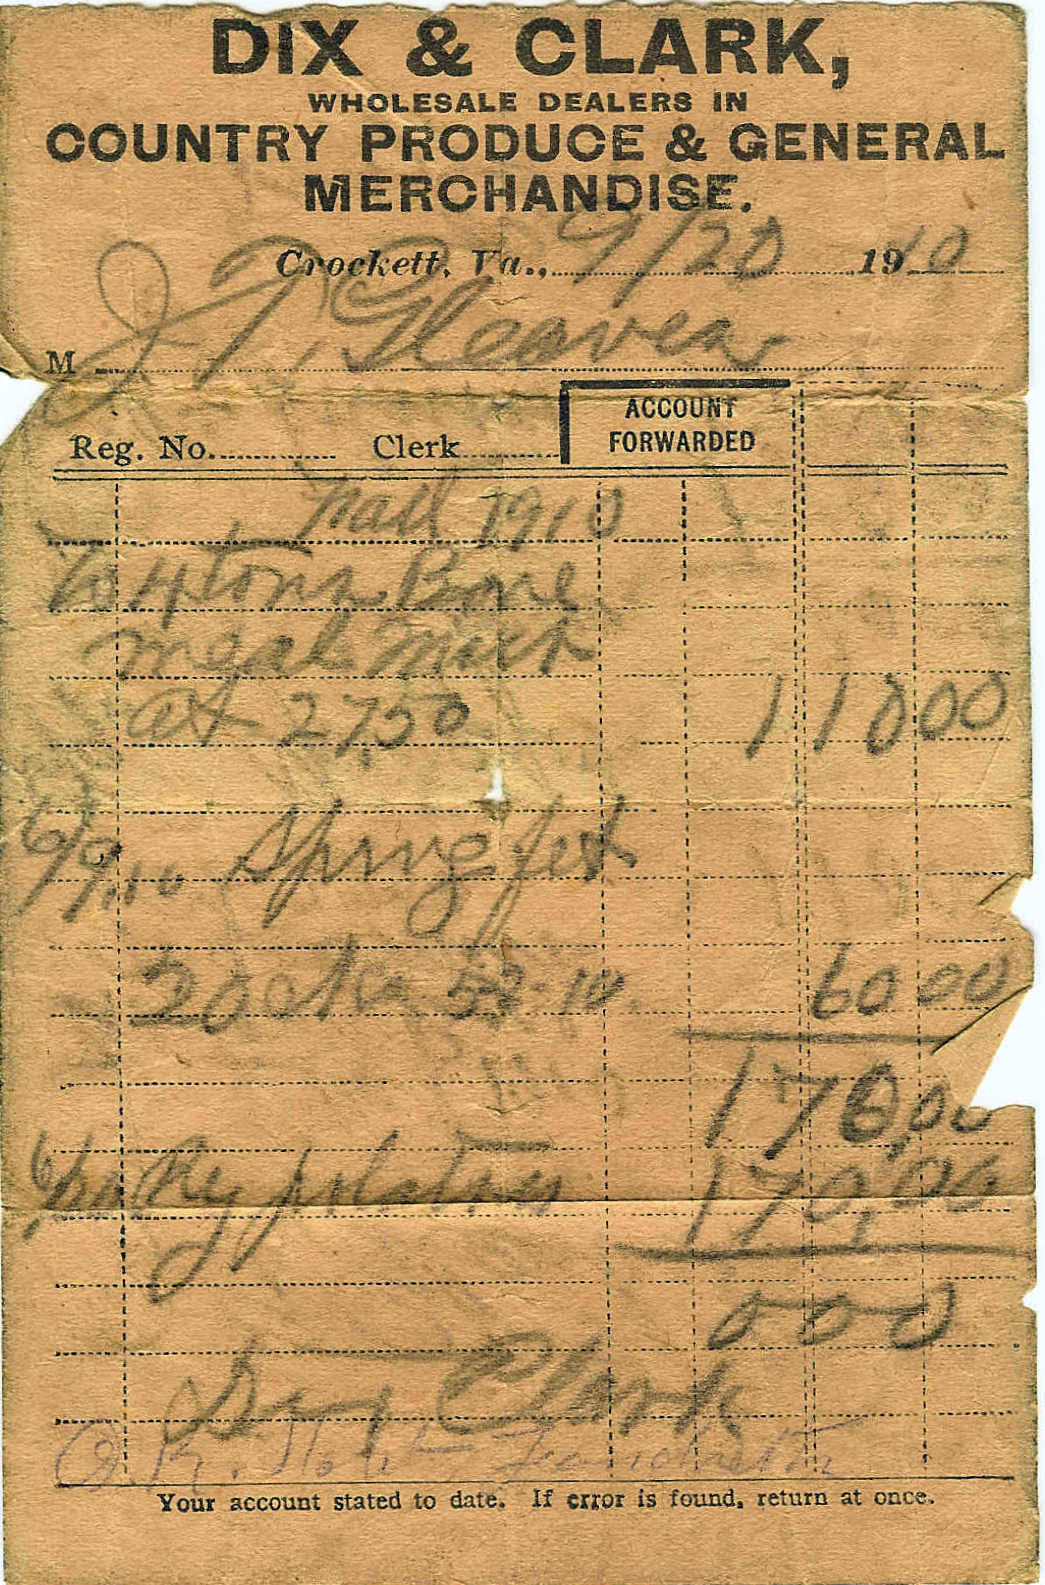 DIX & CLARK,
WHOLESALE DEALERS IN
COUNTRY PRODUCE & GENERAL
MERCHANDISE.
Crockett, Va., 9/20 1910
M J. T. Gleaves
ACCOUNT
FORWARDED
Reg. No. Clerk
1910
To 4 tons Bone
meal
at 2750 11000
6/9.10 Spring fert
20 60 00
170,00
By potatoes 170,00
000
Clark
O.K.
Your account stated to date. If error is found, return at once.